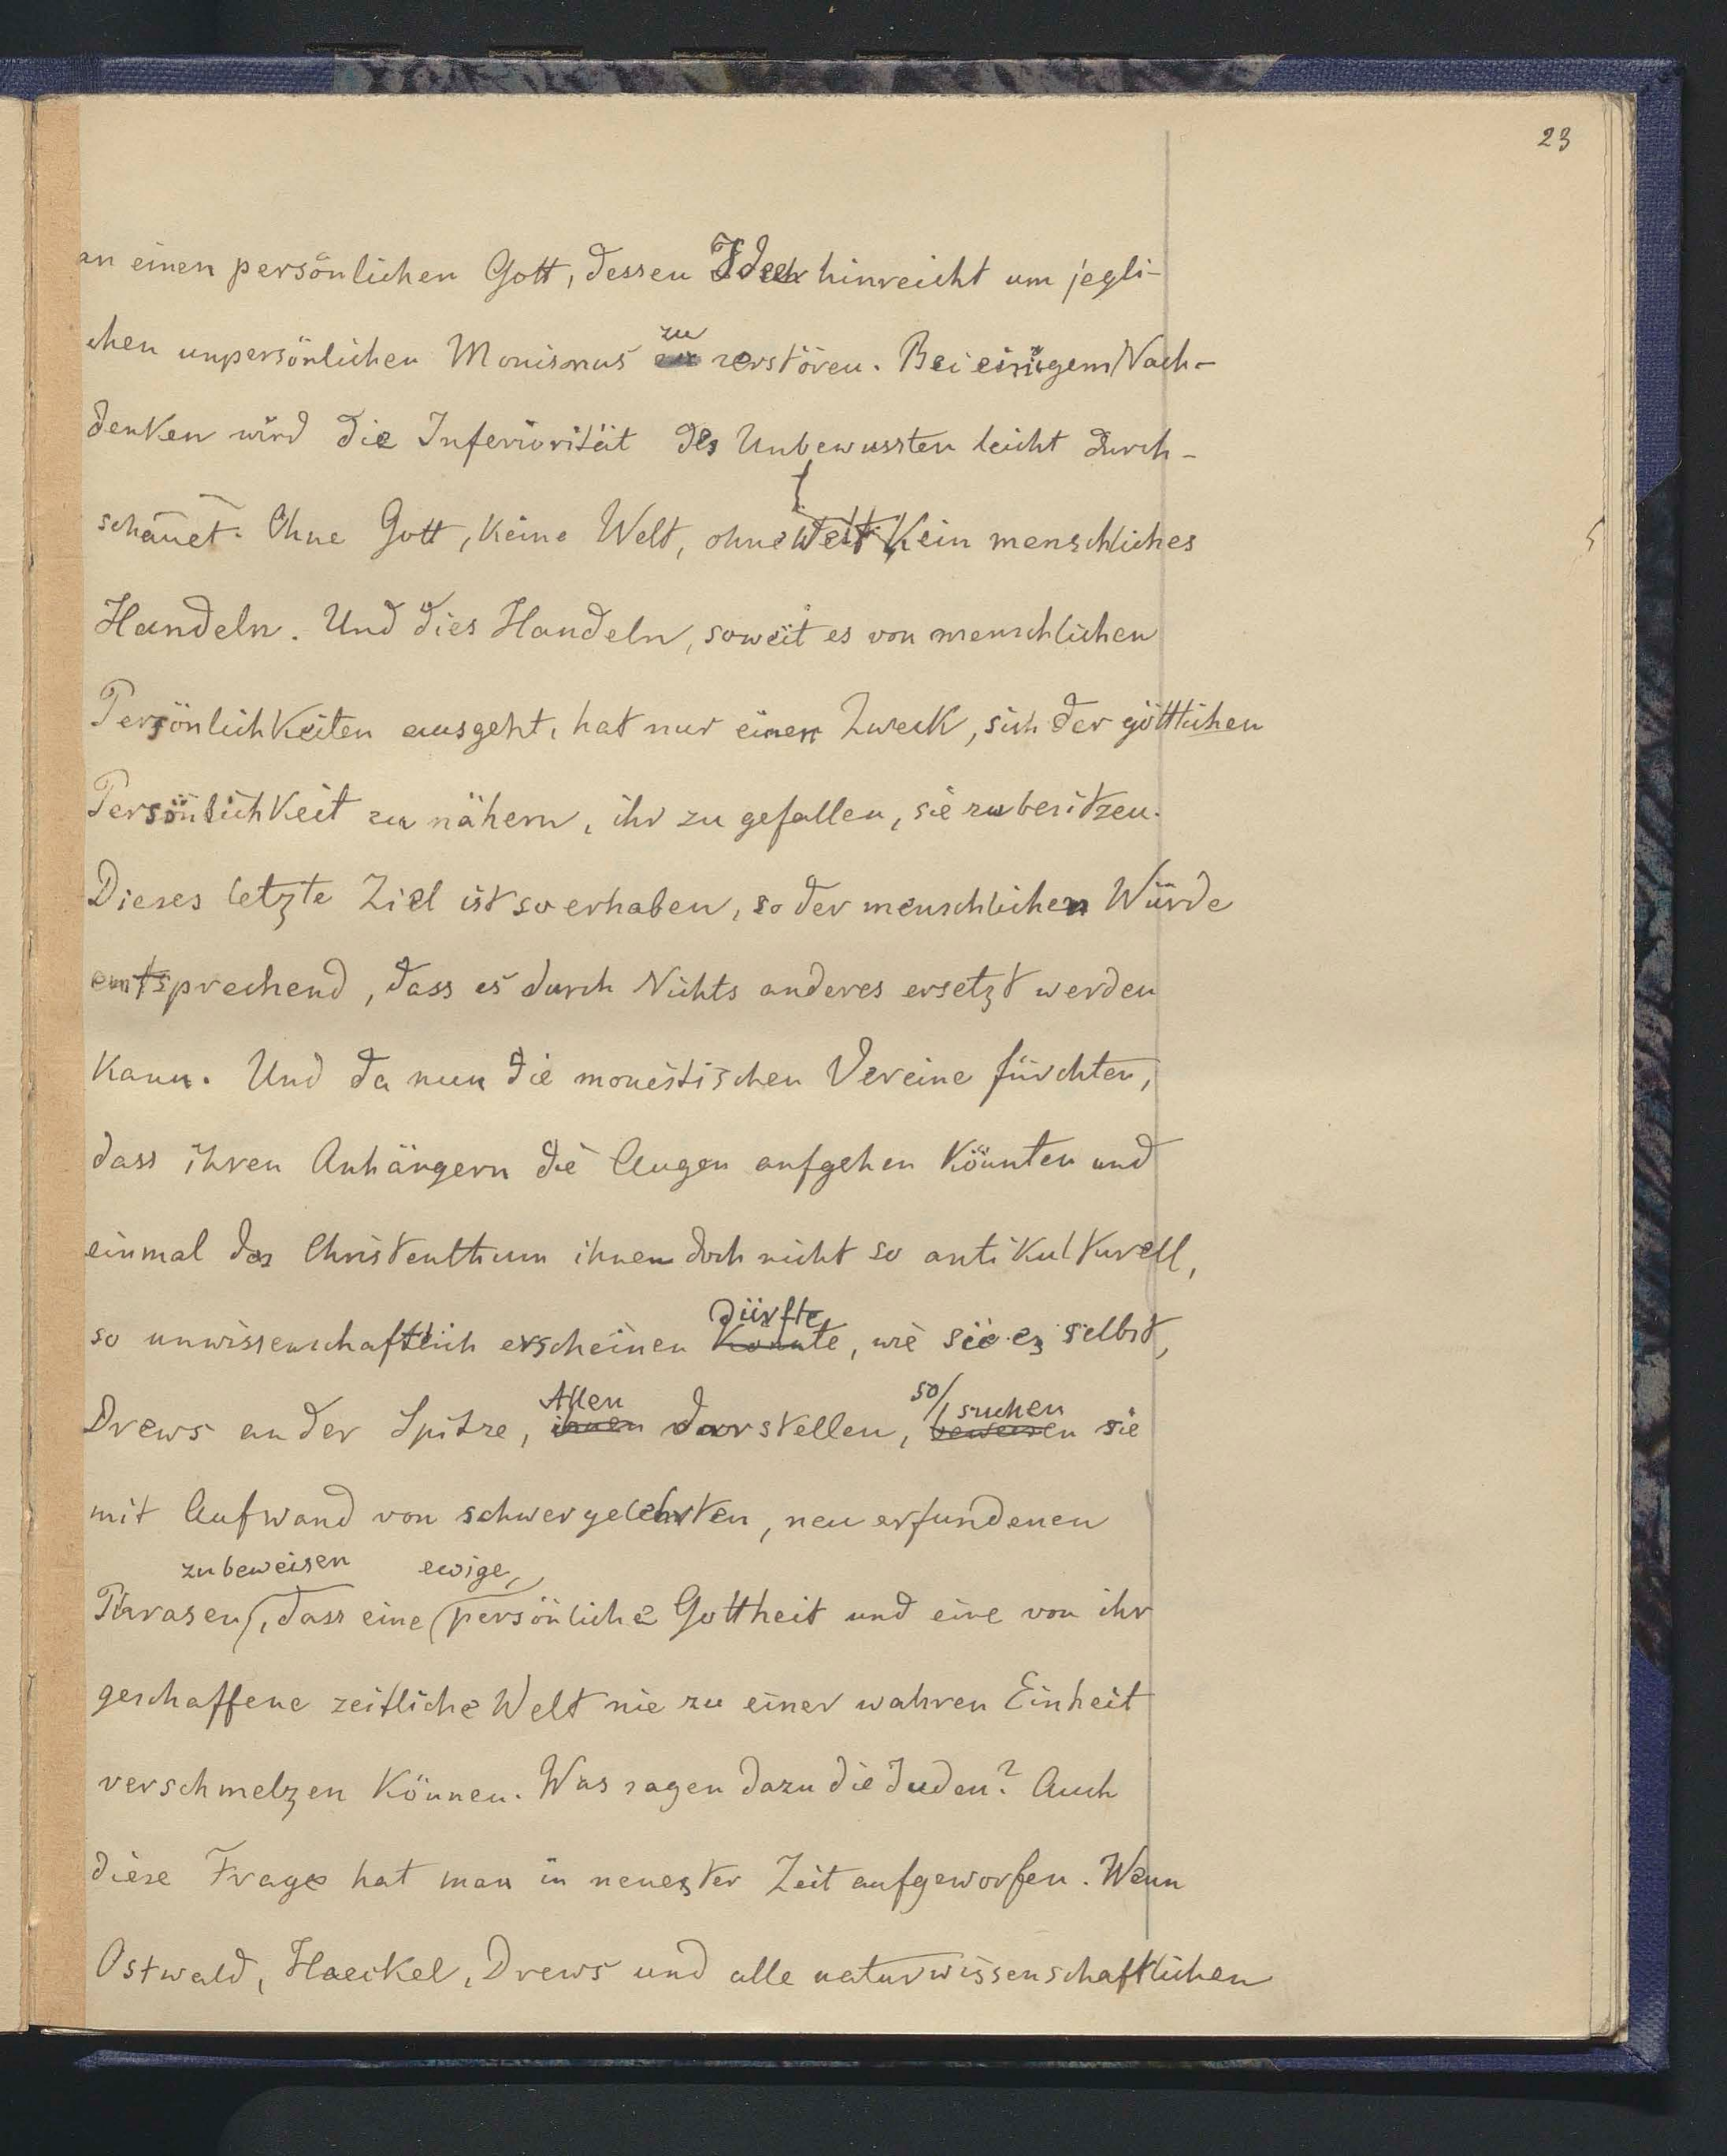 23
an einen persönlichen Gott, dessen Idee hinreicht um jegli-
chen unpersönlichen Monismus zu zerstören. Bei einigem Nach-
denken wird die Inferiorität des Unbewussten leicht durch-
schauet. Ohne Gott, keine Welt, ohne Welt kein menschliches
Handeln. Und dies Handeln, soweit es von menschlichen
Persönlichkeiten ausgeht, hat nur einen Zweck, sich der göttlichen
Persönlichkeit zu nähern, ihr zu gefallen, sie zu besitzen.
Dieses letzte Ziel ist so erhaben, so der menschlichen Würde
entsprechend, dass es durch Nichts anderes ersetzt werden
kann. Und da nun die monistischen Vereine fürchten,
dass ihren Anhängern die Augen aufgehen könnten und
einmal das Christenthum ihnen doch nicht so antikulturell,
dürfte
so unwissenschaftlich erscheinen könnte, wie sie es selbst,
Allen so suchen
Drews an der Spitze, ihnen darstellen, beweisen sie
mit Aufwand von schwergelehrten, neu erfundenen
zu beweisen ewige,
Phrasen, dass eine persönliche Gottheit und eine von ihr
geschaffene zeitliche Welt nie zu einer wahren Einheit
verschmelzen können. Was sagen dazu die Juden? Auch
diese Frage hat man in neuester Zeit aufgeworfen. Wenn
Ostwald, Haeckel, Drews und alle naturwissenschaftlichen